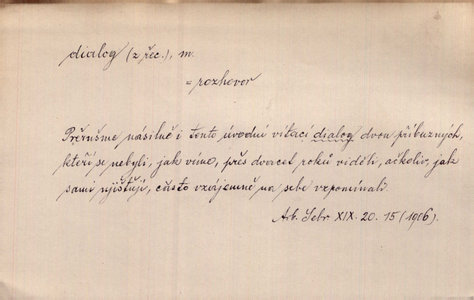 dialog (z řec.), m.
= rozhovor
Přerušme násilně i tento úvodní vítací dialog dvou příbuzných,
kteří se neviděli, jak víme, přes dvacet roků viděti, ačkoliv, jak
sami zjišťují, často vzájemně na sebe vzpomínali.
Arb. Sebr XIX. 20. 15 (1906).